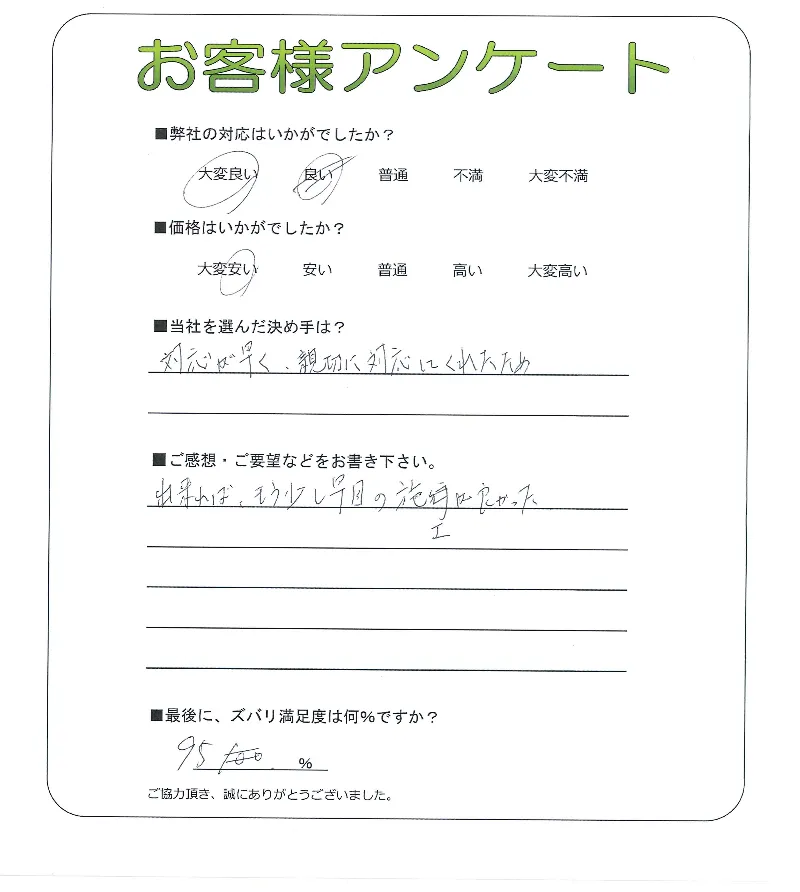 お客様アンケート
■弊社の対応はいかがでしたか？
大変良い 良い 普通 不満 大変不満
■価格はいかがでしたか？
大変安い 安い 普通 高い 大変高い
■当社を選んだ決め手は？
対応が早く、親切に対応してくれたため
■ご感想・ご要望などをお書き下さい。
出来れば、もう少し早目の施工が良かった
■最後に、ズバリ満足度は何%ですか？
95 100 %
ご協力頂き、誠にありがとうございました。